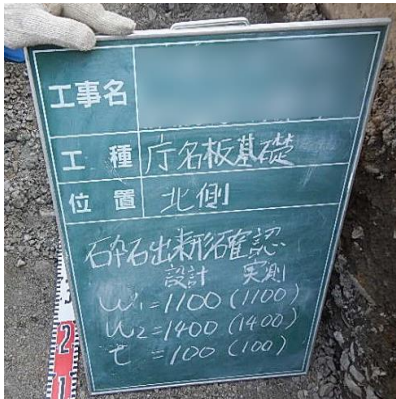 工事名
工種 庁名板基礎
位置 北側
砕石出来形確認
設計 実測
W1=1100(1100)
W2=1400(1400)
t=100(100)
2
1